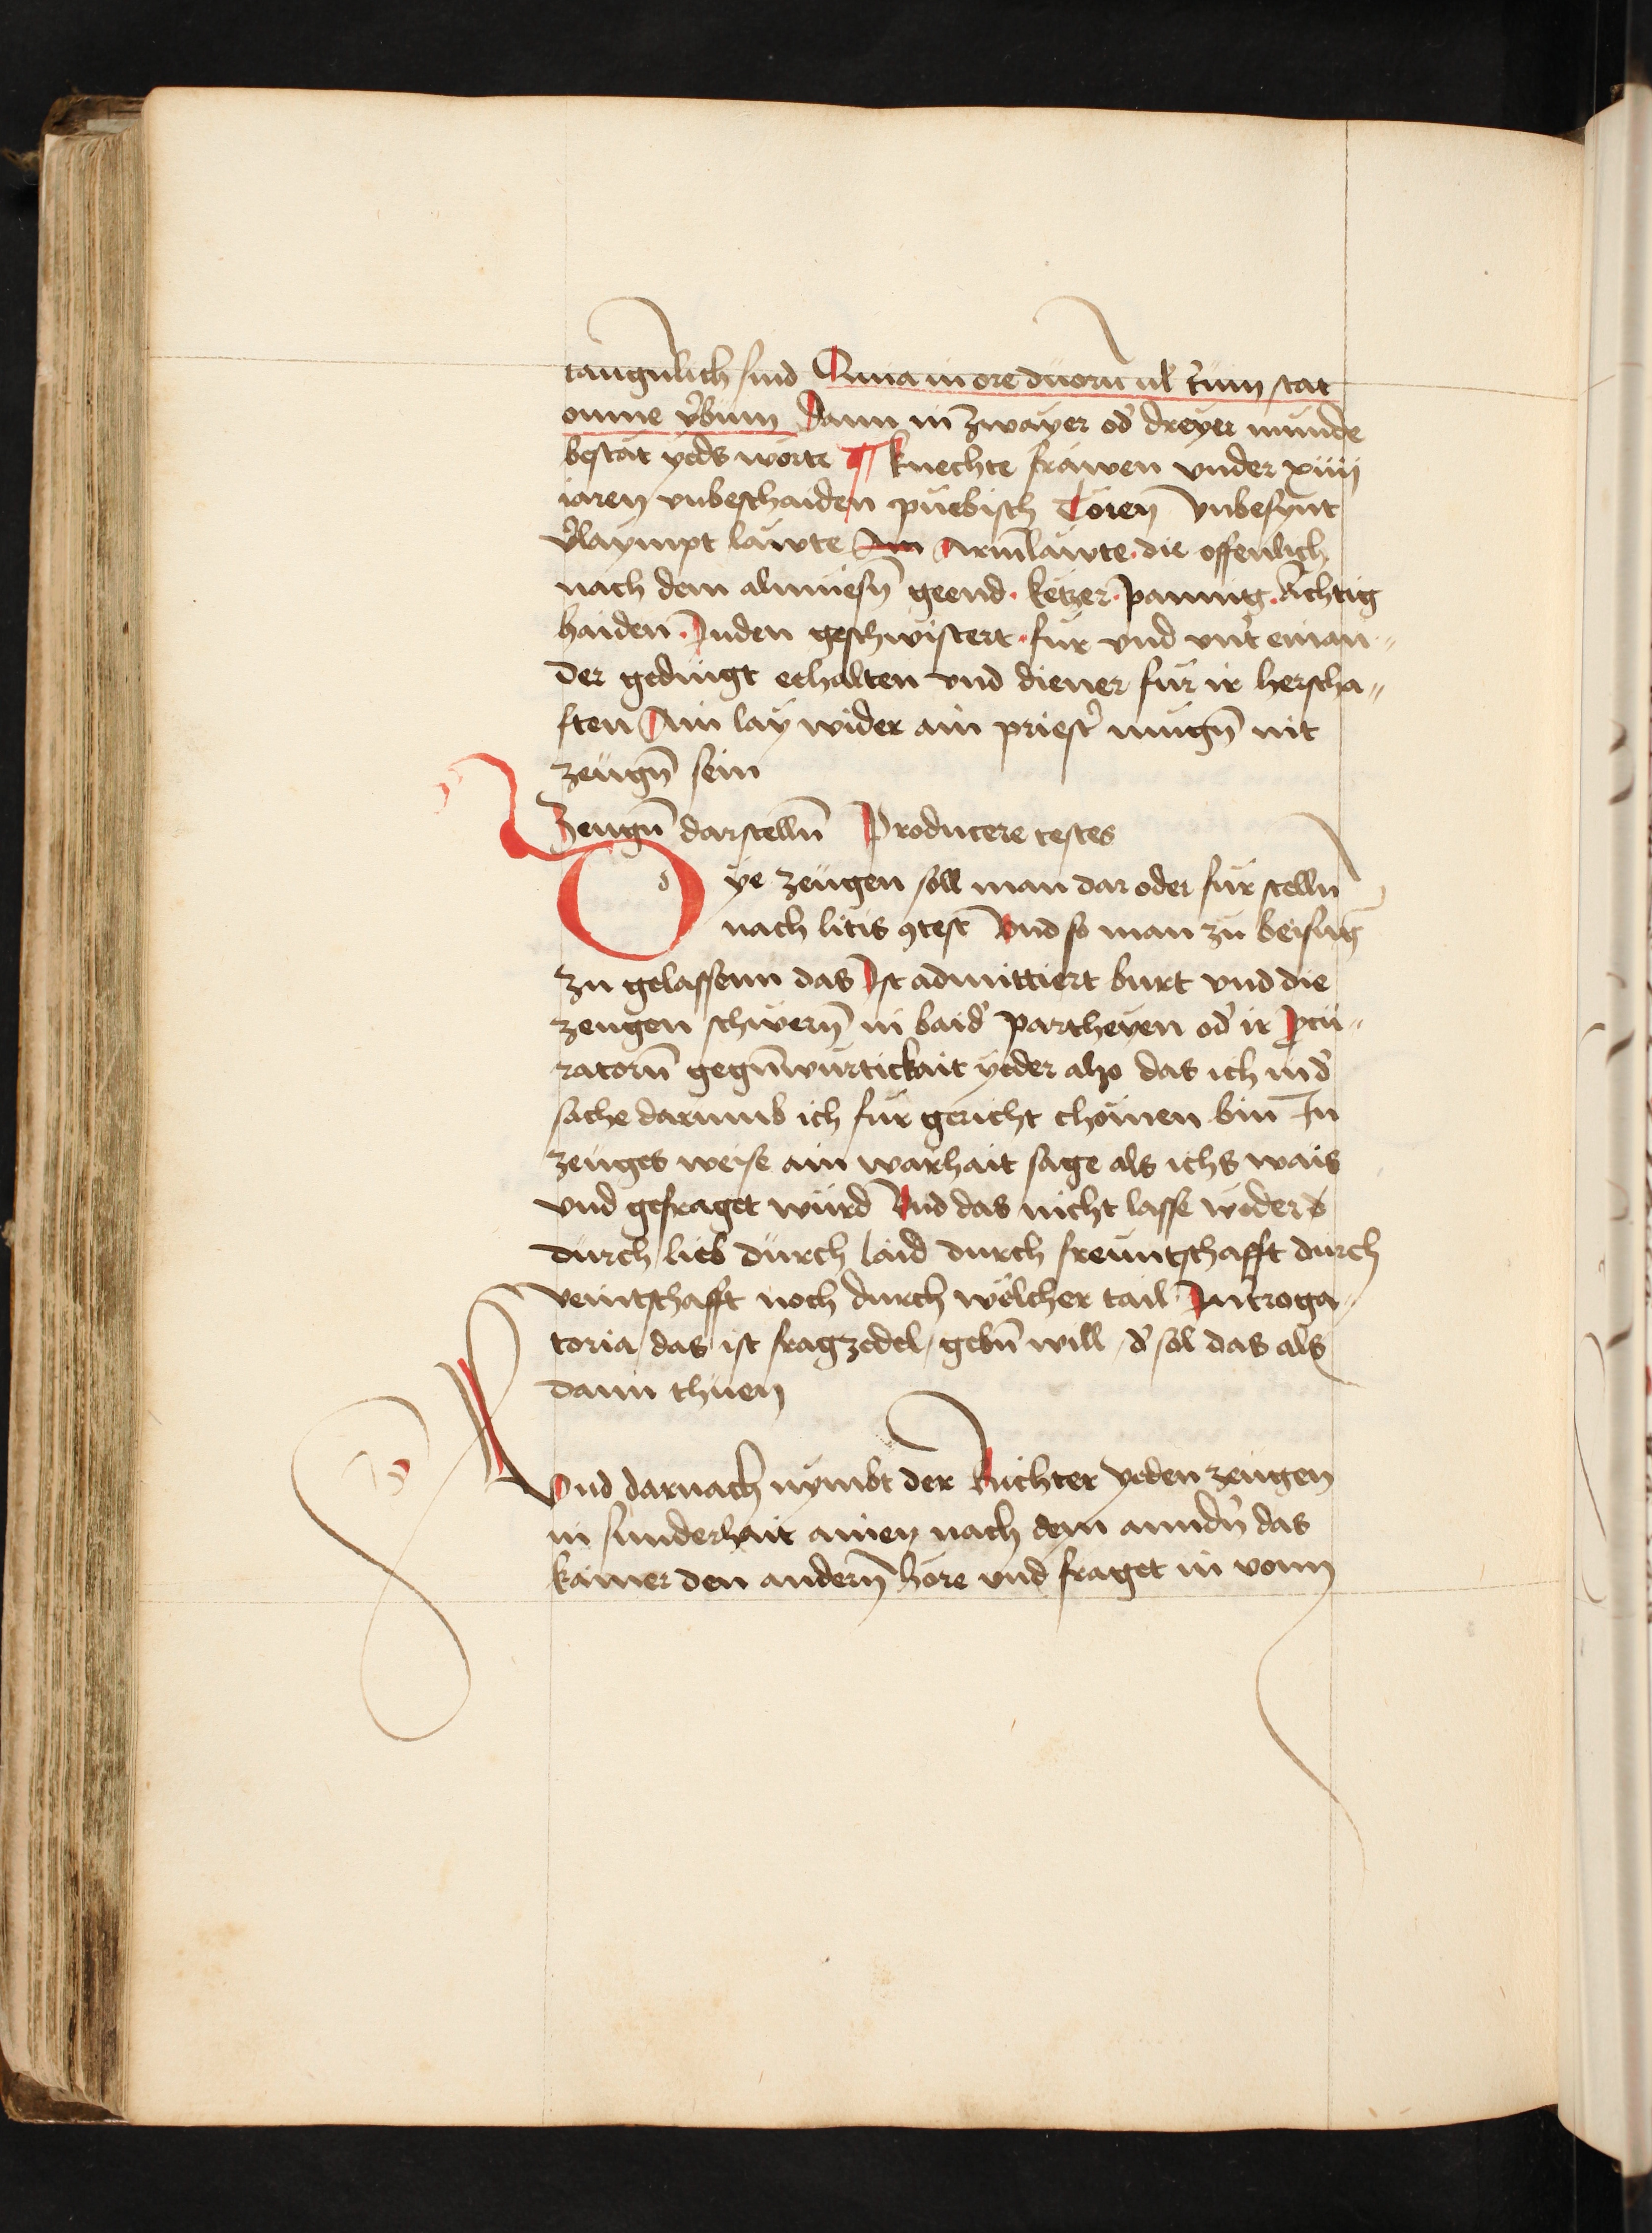 taugnlich sind Quia in ore duorū ul' t'ium stat
omne v'bum Dann in zwayer od' dreyer munde
bestat yeds worte ¶ knechte frawen vnder xiiij
iaren vnbeschaiden puebisch Toren Vnbesynt
v'laympt läwte Am Armläwte · die offenlich
nach dem almuesn̄ geend · ketzer · pannig · Achtig
haiden · Juden geschwistert · für vnd vnt' einan〃
der gedingt eehalten vnd diener für ir herscha〃
ften Ain lay wider ain priest' mugn̄ nit
zeugn̄ sein
Zeugn̄ darstelln̄ Producere testes
Dye zeugen söll man dar oder für stelln̄
nach litis ꝯtest' Vnd so man zu beisunḡ
zu gelassenn das Ist admittiert burt vnd die
zeugen schwern̄ in baid' partheyen od' ir ꝓcu〃
ratorn̄ gegn̄würtickait yeder also das ich in d'
sache darumb ich für gericht chömen bin In
zeuges weise ain warhait sage als ichs wais
vnd gefraget würd Vnd das nicht lasse weders
durch lieb durch laid durch freuntschafft durch
veintschafft noch durch wölcher tail Int'roga〃
toria / das ist fragzedel / gebn̄ will / d' söl das als
dann thuen
Vnd darnach nymbt der Richter yeden zeugen
in sunderhait ainen nach dem anndn̄ das
kainer den andern̄ höre vnd fraget in vonn